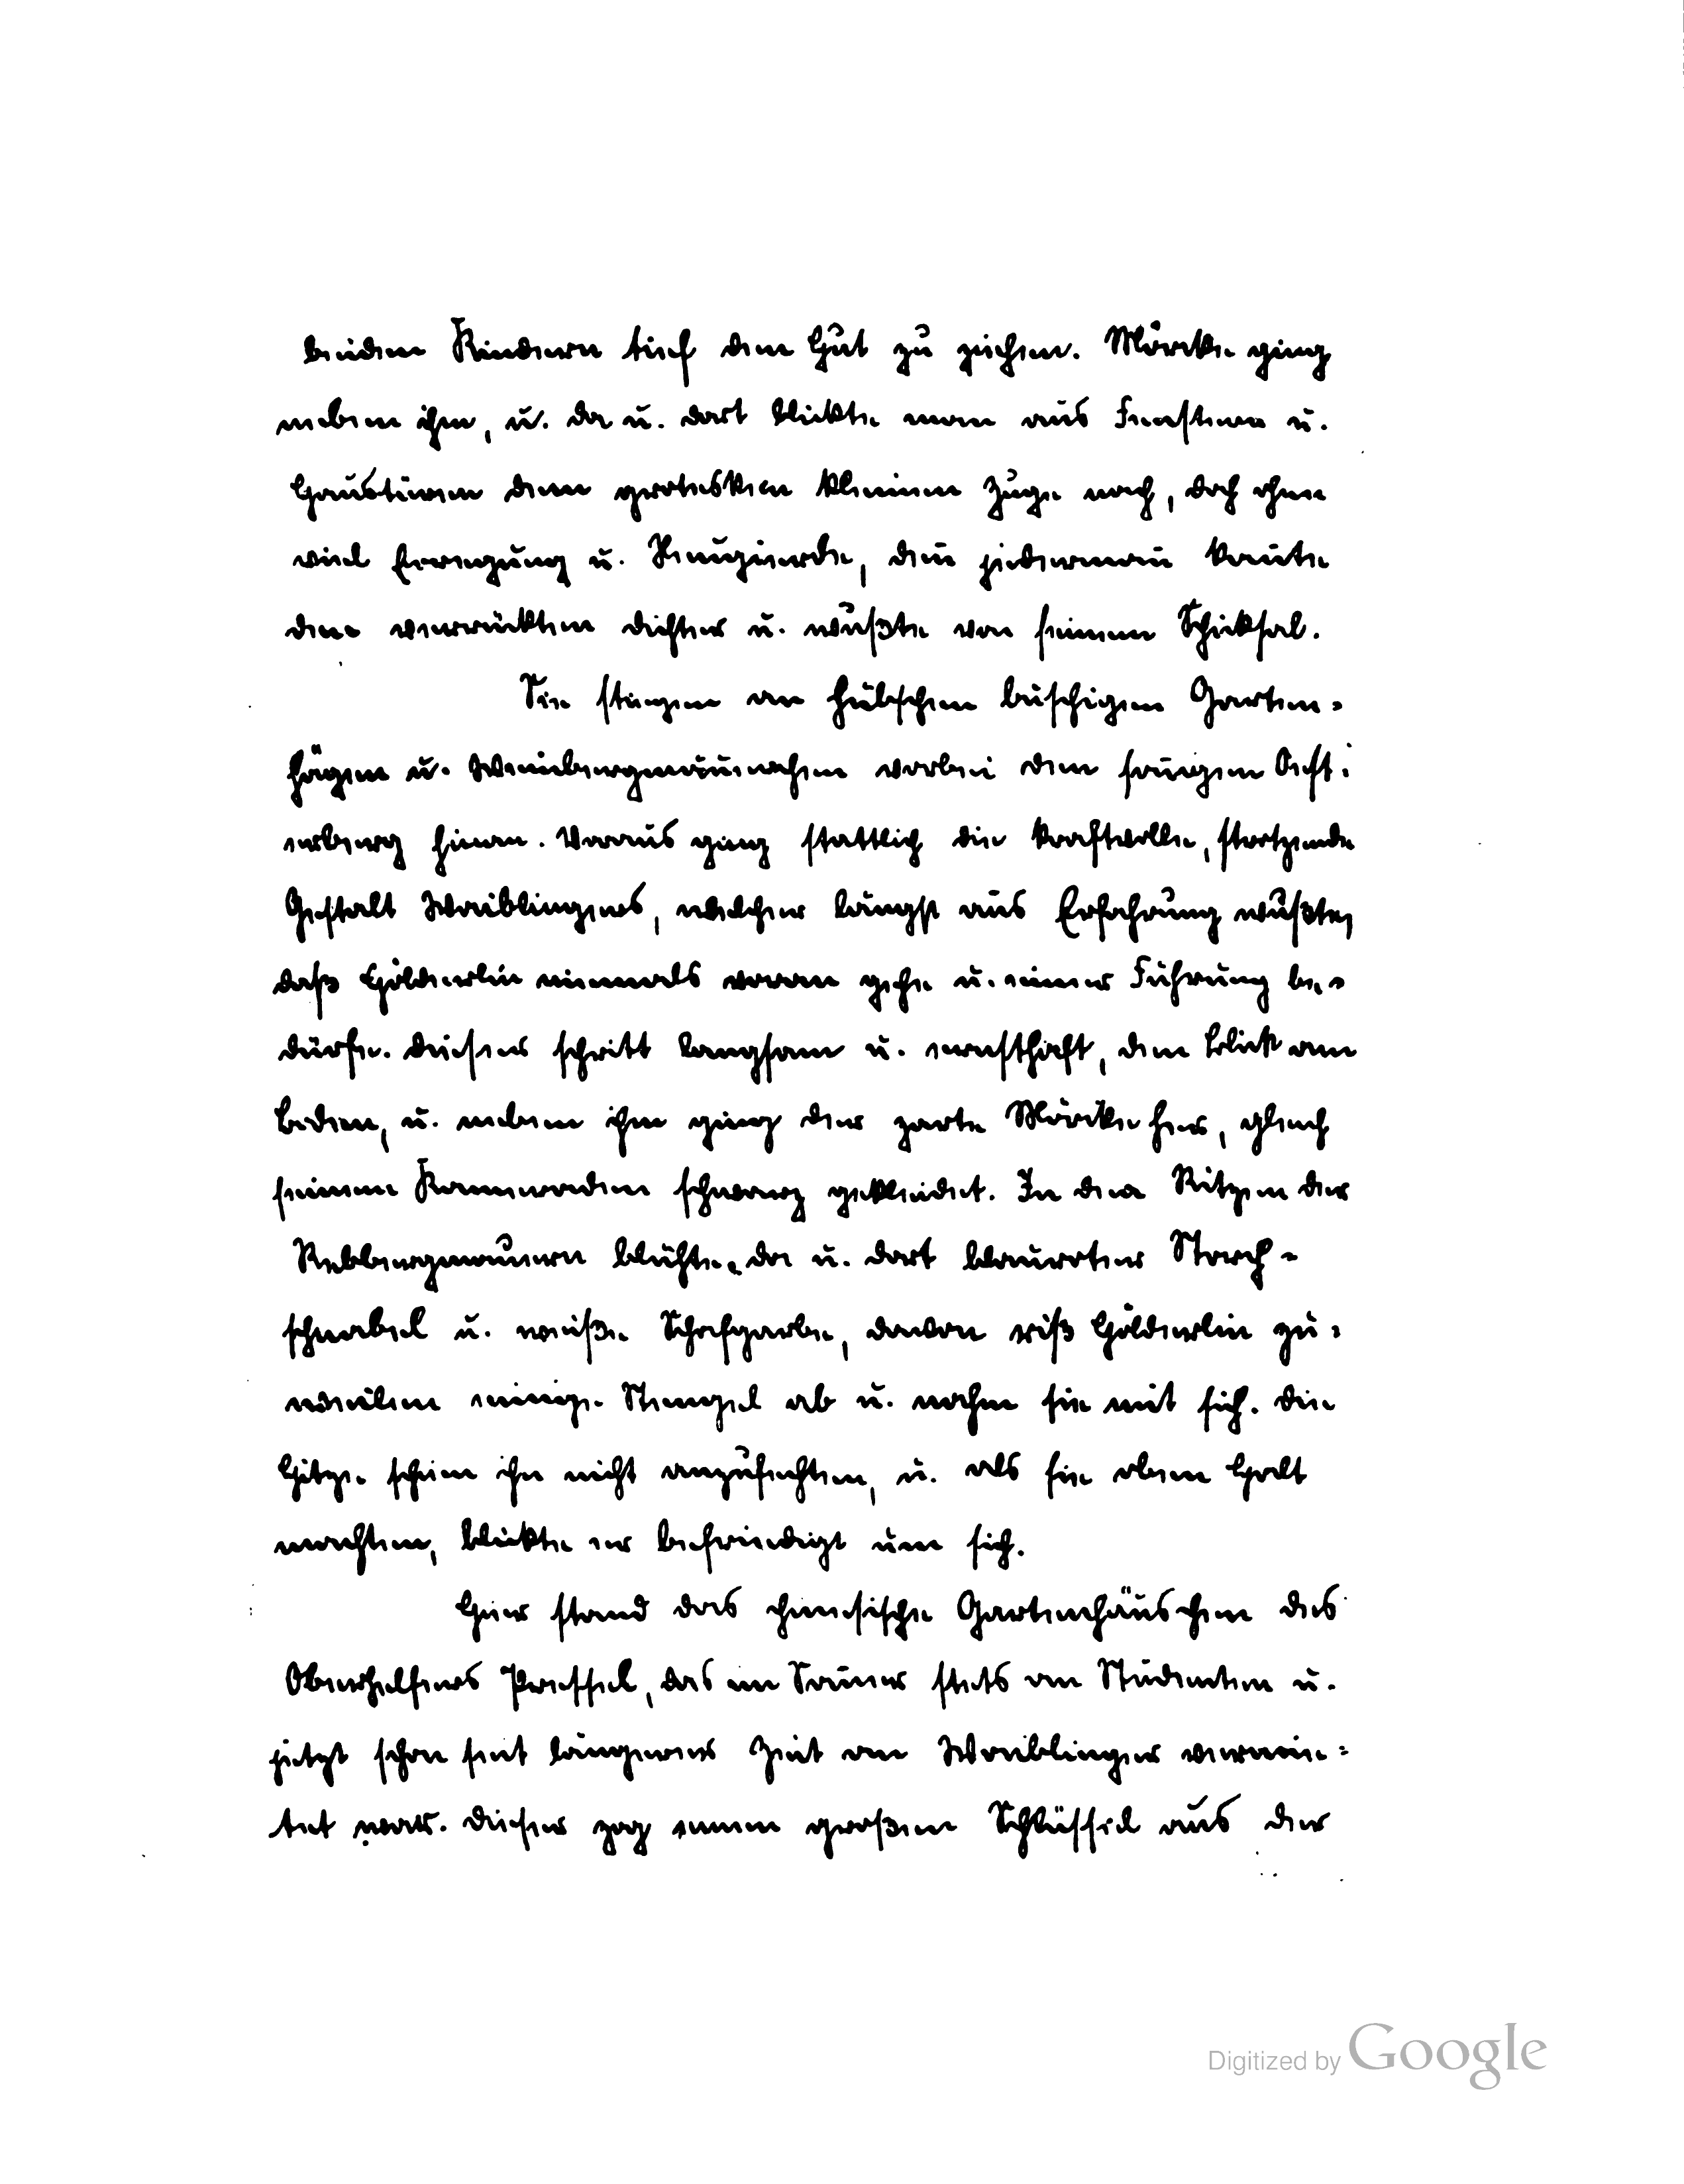 beiden Kindern tief den Hut zu ziehen. Mörike ging
neben ihm, u. da u. dort blickte man aus Fenstern u.
Haustüren dem grotesken kleinen Zuge nach, doch ohne
viel Erregung u. Neugierde, deñ jedermañ kañte
den verrückten Dichter u. wußte von seinem Schicksal.
Sie stiegen an hübschen buschigen Garten-
hägen u. Weinbergmäuerchen vorbei den soñigen Öst-
erberg hinan. Voraus ging stattlich die kraftvolle, strotzende
Gestalt Waiblingers, welcher längst aus Erfahrung wußte,
daß Hölderlin niemals voran gehe u. einer Führung be-
dürfe. Dieser schritt langsam u. ernsthaft, den Blick am
Boden, u. neben ihm ging der zarte Mörike her, gleich
seinem Kameraden schwarz gekleidet. In den Ritzen der
Rebbergmauern blühte da u. dort blauroter Storch-
schnabel u. weiße Schafgarbe, davon riß Hölderlin zu-
weilen einige Stengel ab u. nahm sie mit sich. Die
Hitze schien ihn nicht anzufechten, u. als sie oben Halt
machten, blickte er befriedigt um sich.
Hier stand das chinesische Gartenhäuschen des
Oberhelfers Pressel, das im Som̃er stets an Studenten u.
jetzt schon seit längerer Zeit an Waiblinger vermie-
tet war. Dieser zog einen großen Schlüssel aus der
Digitized by Google